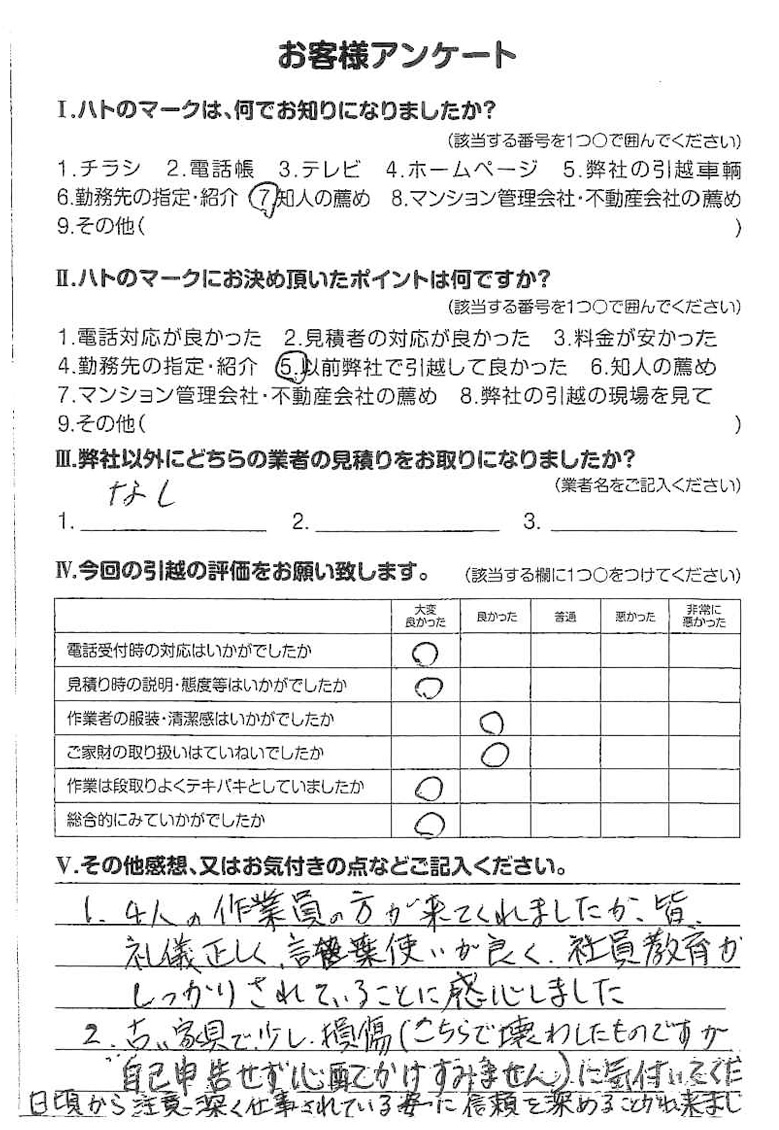 お客様アンケート
Ⅰ.ハトのマークは、何でお知りになりましたか?
(該当する番号を1つ○で囲んでください)
1.チラシ 2.電話帳 3.テレビ 4.ホームページ 5.弊社の引越車輌
6.勤務先の指定・紹介 7.知人の薦め 8.マンション管理会社・不動産会社の薦め
9.その他( )
Ⅱ.ハトのマークにお決め頂いたポイントは何ですか?
(該当する番号を1つ○で囲んでください)
1.電話対応が良かった 2.見積者の対応が良かった 3.料金が安かった
4.勤務先の指定・紹介 5.以前弊社で引越して良かった 6.知人の薦め
7.マンション管理会社・不動産会社の薦め 8.弊社の引越の現場を見て
9.その他( )
Ⅲ.弊社以外にどちらの業者の見積りをお取りになりましたか?
(業者名をご記入ください)
なし
1. 2. 3.
Ⅳ.今回の引越の評価をお願い致します。 (該当する欄に1つ○をつけてください)
大変良かった 良かった 普通 悪かった 非常に悪かった
電話受付時の対応はいかがでしたか ○
見積り時の説明・態度等はいかがでしたか ○
作業者の服装・清潔感はいかがでしたか ○
ご家財の取り扱いはていねいでしたか ○
作業は段取りよくテキパキとしていましたか ○
総合的にみていかがでしたか ○
Ⅴ.その他感想、又はお気付きの点などご記入ください。
1. 4人の作業員の方が来てくれましたが、皆、
礼儀正しく、言葉使いが良く、社員教育が
しっかりされていることに感心しました
2. 古い家具で、少し損傷(こちらで壊わしたものですが
自己申告せず心配かけすみません)に気付いてくだ
日頃から注意深く仕事されている姿に信頼を深めることが出来まし